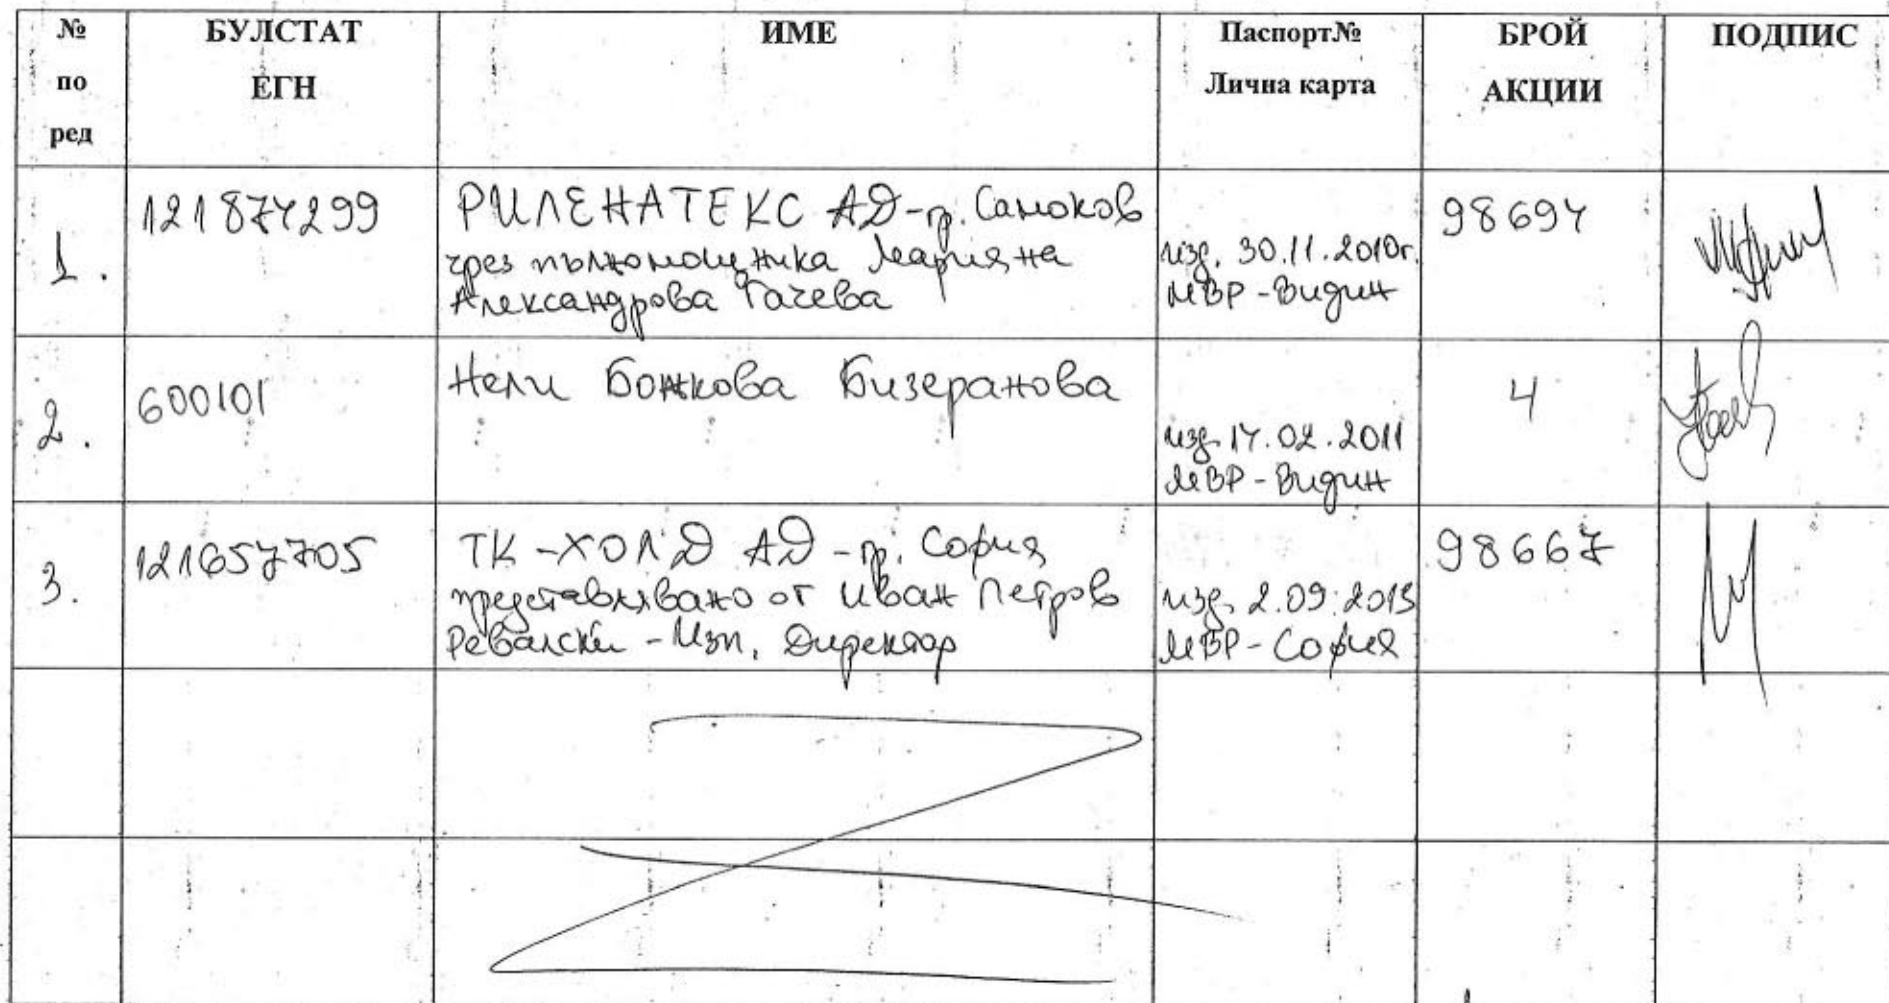 № по ред БУЛСТАТ ЕГН ИМЕ Паспорт№ Лична карта БРОЙ АКЦИИ ПОДПИС
1. 121874299 РИЛЕНАТЕКС АД-гр. Самоков
чрез пълномощника Марияна
Александрова Тачева
изд. 30.11.2010г.
МВР-Видин
98694
2. 600101 Нели Божкова Бизеранова
изд. 14.02.2011
МВР-Видин
4
3. 121657705 ТК-ХОЛД АД-гр. София
представлявано от Иван Петров
Ревалски - Изп. Директор
изд. 2.09.2013
МВР-София
98667